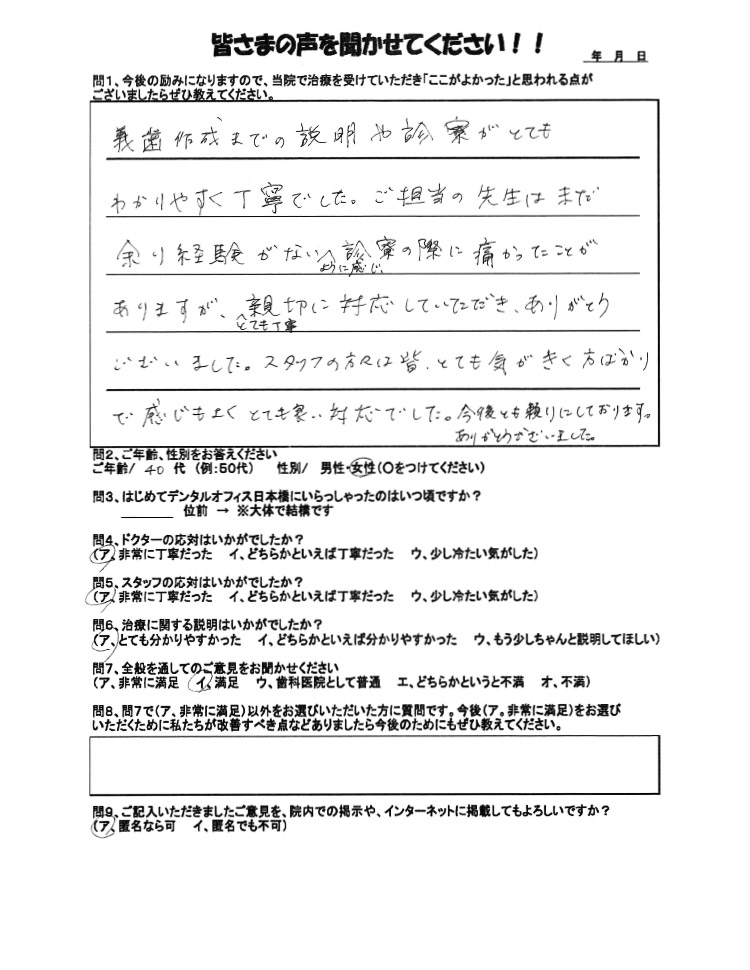 皆さまの声を聞かせてください！！
年 月 日
問1、今後の励みになりますので、当院で治療を受けていただき「ここがよかった」と思われる点が
ございましたらぜひ教えてください。
義歯作成までの説明や診寮がとても
わかりやすく丁寧でした。ご担当の先生はまだ
余り経験がない診寮の際に痛かったことが
ように感じ、
ありますが、親切に対応していただき、ありがとう
とても丁寧
ございました。スタッフの方々は皆、とても気がきく方ばかり
で感じもよくとても良い対応でした。今後とも頼りにしております。
ありがとうございました。
問2、ご年齢、性別をお答えください
ご年齢/ 40 代 (例:50代) 性別/ 男性・女性(○をつけてください)
問3、はじめてデンタルオフィス日本橋にいらっしゃったのはいつ頃ですか？
位前 → ※大体で結構です
問4、ドクターの応対はいかがでしたか？
(ア、非常に丁寧だった イ、どちらかといえば丁寧だった ウ、少し冷たい気がした)
問5、スタッフの応対はいかがでしたか？
(ア、非常に丁寧だった イ、どちらかといえば丁寧だった ウ、少し冷たい気がした)
問6、治療に関する説明はいかがでしたか？
(ア、とても分かりやすかった イ、どちらかといえば分かりやすかった ウ、もう少しちゃんと説明してほしい)
問7、全般を通してのご意見をお聞かせください
(ア、非常に満足 イ、満足 ウ、歯科医院として普通 エ、どちらかというと不満 オ、不満)
問8、問7で(ア、非常に満足)以外をお選びいただいた方に質問です。今後(ア。非常に満足)をお選び
いただくために私たちが改善すべき点などありましたら今後のためにもぜひ教えてください。
問9、ご記入いただきましたご意見を、院内での掲示や、インターネットに掲載してもよろしいですか？
(ア、匿名なら可 イ、匿名でも不可)